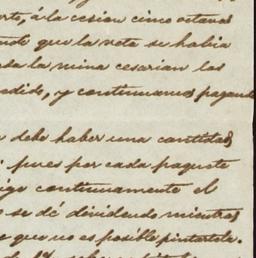 rte, á la cesion cinco octavas
que la veta se habia
la mina cesarian los
pedido, y continuamos pagando
debe haber una cantidad
pues por cada paquete
continuamente el
se dé dividendo mientras
que no es posible pintartela.